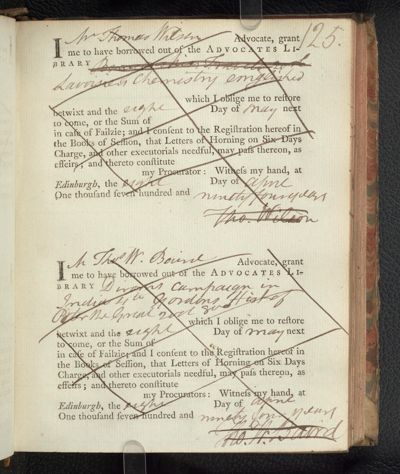 125.
I Mr Thomas Wilson Advocate, grant
me to have borrowed out of the ADVOCATES LI-
BRARY
Lavoisiers Chemistry
which I oblige me to reſtore
betwixt and the eight Day of May next
to come, or the Sum of
in caſe of Failzie; and I conſent to the Regiſtration hereof in
the Books of Seſſion, that Letters of Horning on Six Days
Charge, and other executorials needful, may paſs thereon, as
effeirs; and thereto conſtitute
my Procurator: Witneſs my hand, at
Edinburgh, the eight Day of Aprile
One thouſand ſeven hundred and ninety four years
Tho. Wilson
I Mr Thos W. Baird Advocate, grant
me to have borrowed out of the ADVOCATES LI-
BRARY Dirom's Campaign in
India 4to Gordons Hist of
Peter the Great 2 vol
which I oblige me to reſtore
betwixt and the eight Day of May next
to come, or the Sum of
in caſe of Failzie; and I conſent to the Regiſtration hereof in
the Books of Seſſion, that Letters of Horning on Six Days
Charge, and other executorials needful, may paſs thereon, as
effeirs; and thereto conſtitute
my Procurators: Witneſs my hand, at
Edinburgh, the eight Day of Aprile
One thouſand ſeven hundred and ninety four years
Tho. W. Baird